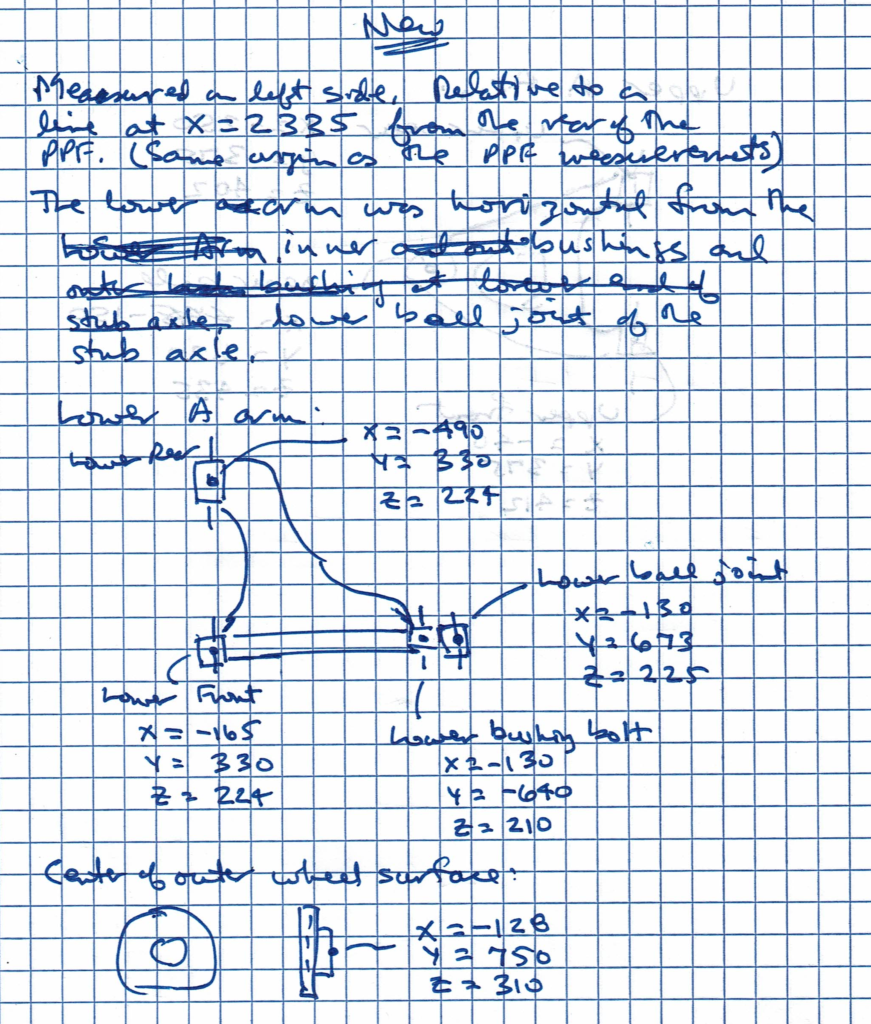 New
Measured on left side. Relative to a
line at X=2335 from the rear of the
PPF. (Same origin as the PPF measurements)
The lower arm was horizontal from the
inner bushings and
outer bushing at lower end of
stub axle. lower ball joint of the
stub axle.
Lower A arm:
Lower Rear
X = -490
Y = 330
Z = 224
Lower ball joint
X = -130
Y = 673
Z = 225
Lower Front
X = -165
Y = 330
Z = 224
Lower bushing bolt
X = -130
Y = -640
Z = 210
Center of outer wheel surface:
X = -128
Y = 750
Z = 310